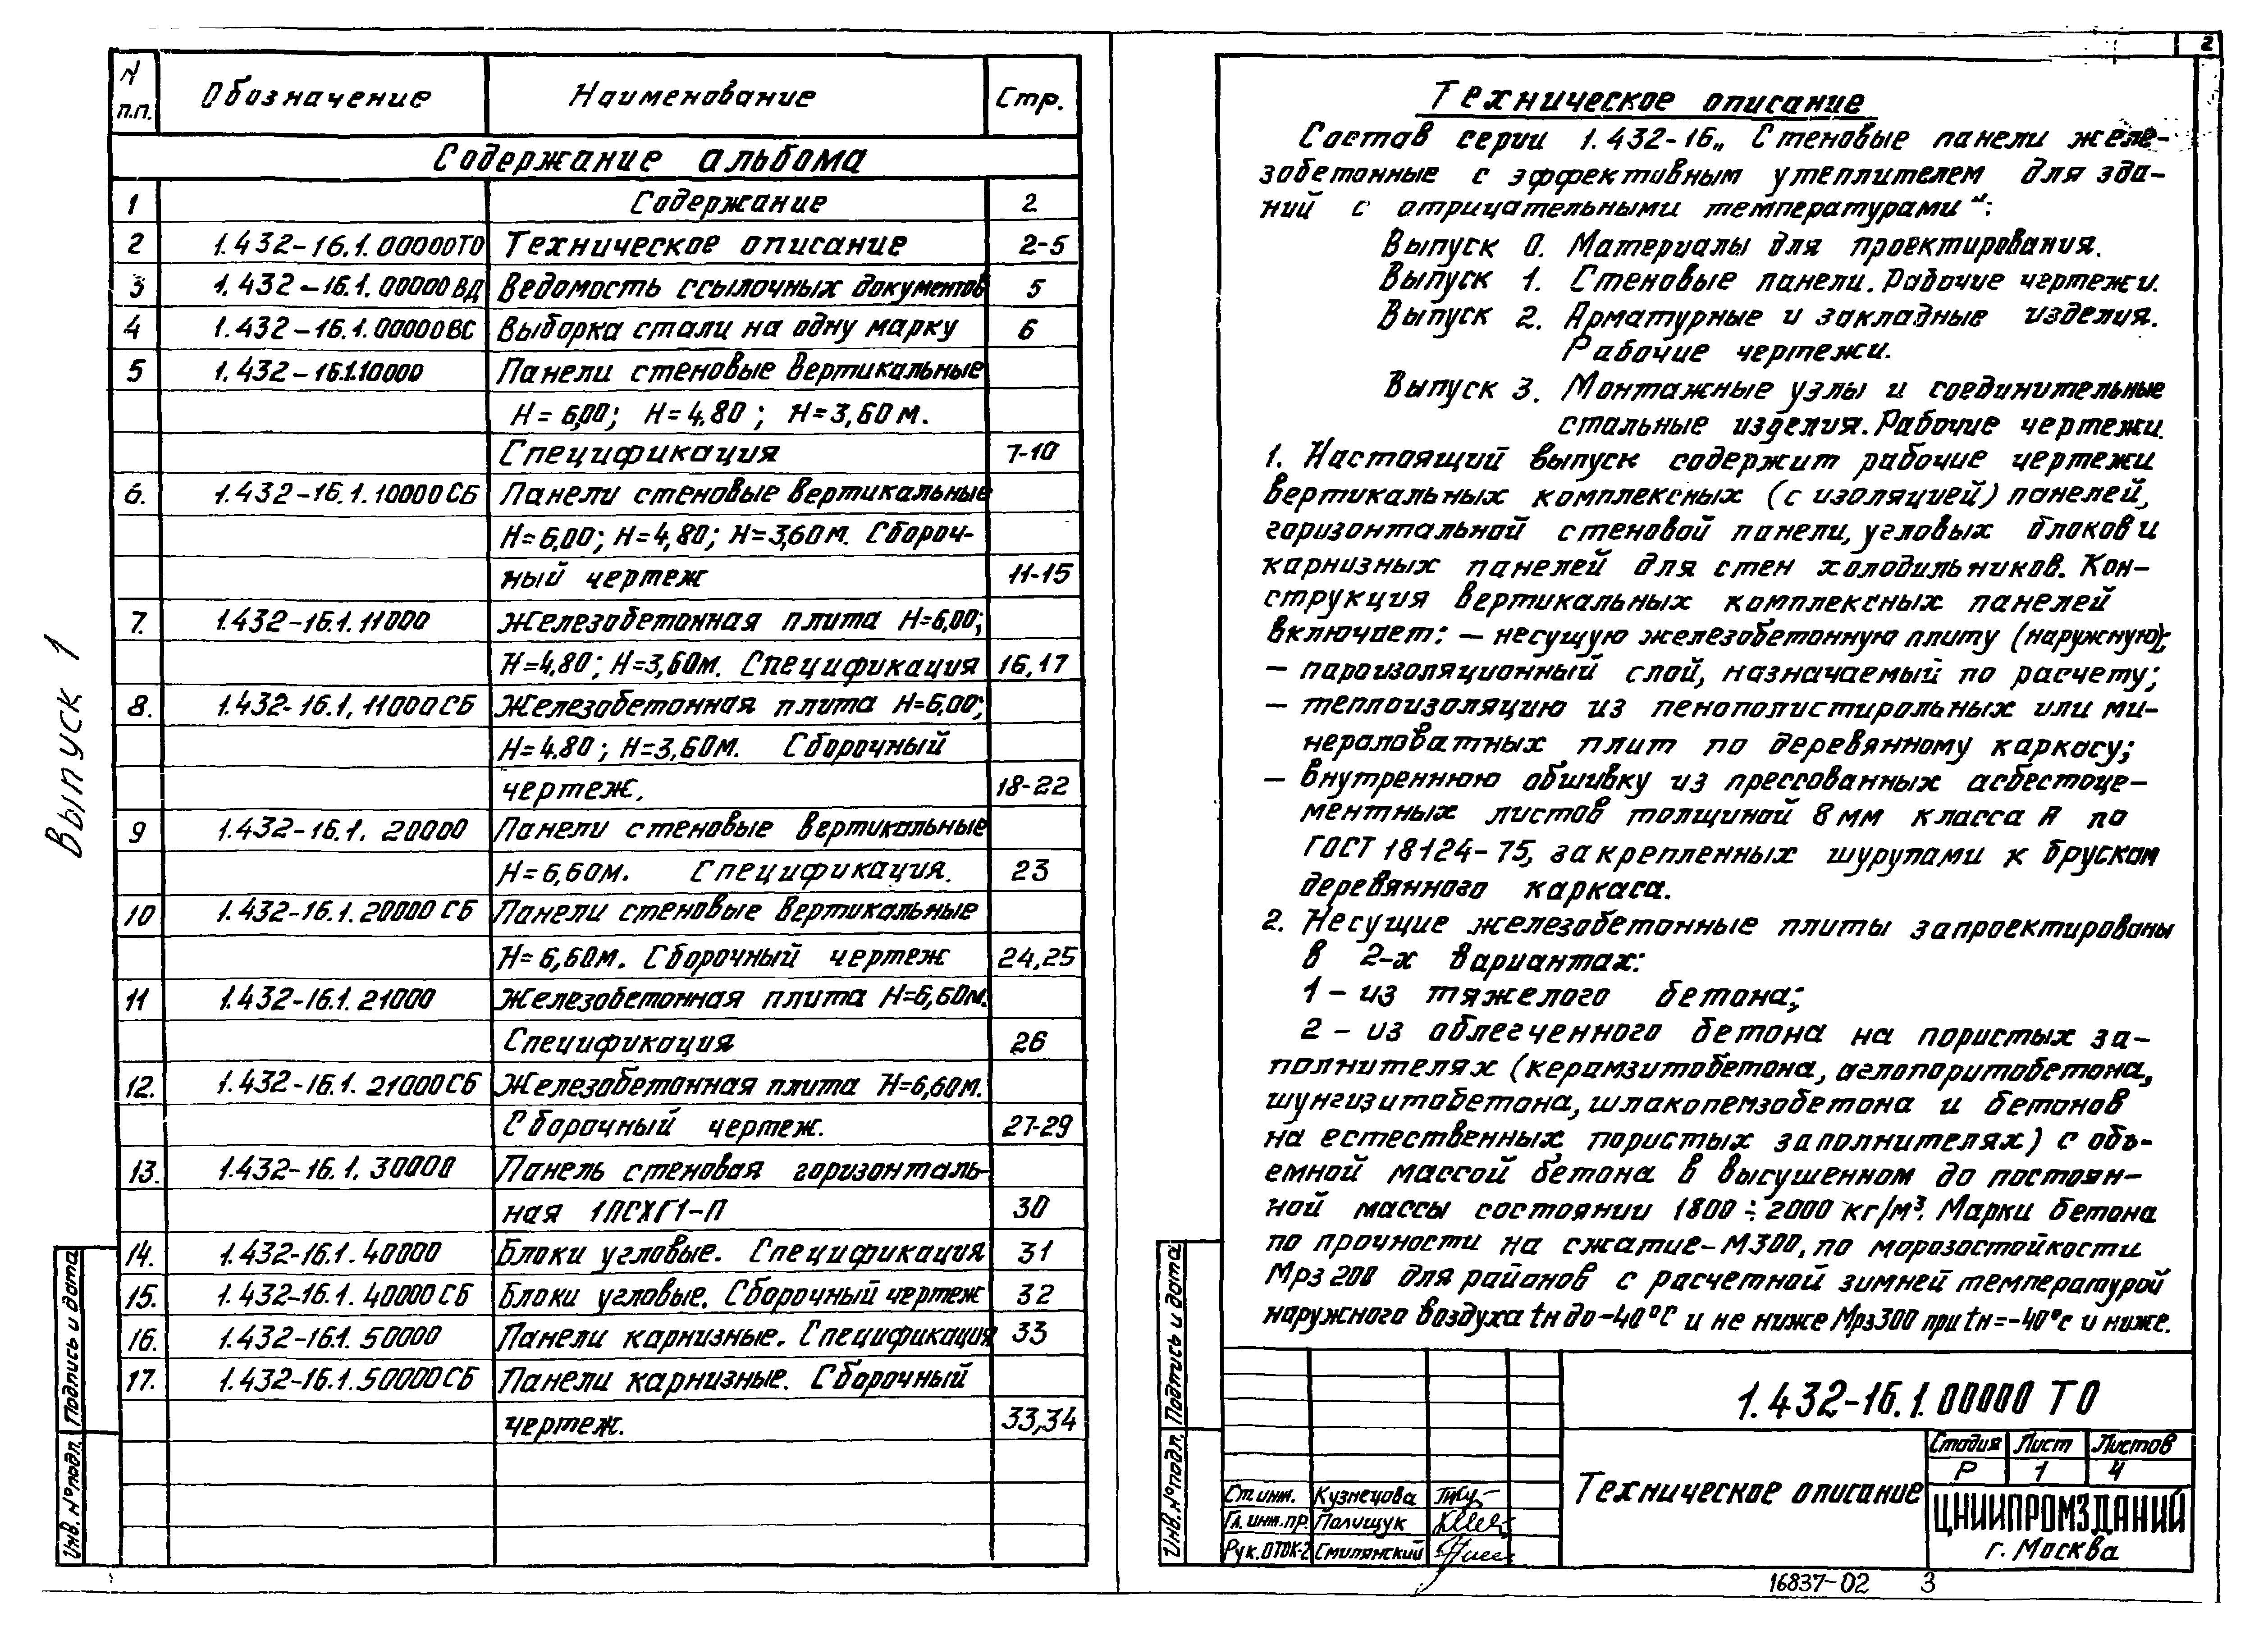 Выпуск 1
N п.п. Обозначение Наименование Стр.
Содержание альбома
1 Содержание 2
2 1.432-16.1.00000ТО Техническое описание 2-5
3 1.432-16.1.00000ВД Ведомость ссылочных документов 5
4 1.432-16.1.00000ВС Выборка стали на одну марку 6
5 1.432-16.1.10000 Панели стеновые вертикальные
Н=6,00; Н=4,80; Н=3,60м.
Спецификация 7-10
6. 1.432-16.1.10000СБ Панели стеновые вертикальные
Н=6,00; Н=4,80; Н=3,60м. Сбороч-
ный чертеж 11-15
7. 1.432-16.1.11000 Железобетонная плита Н=6,00;
Н=4,80; Н=3,60м. Спецификация 16,17
8. 1.432-16.1.11000СБ Железобетонная плита Н=6,00;
Н=4.80; Н=3,60м. Сборочный
чертеж. 18-22
9 1.432-16.1.20000 Панели стеновые вертикальные
Н=6,60м. Спецификация. 23
10 1.432-16.1.20000СБ Панели стеновые вертикальные
Н=6,60м. Сборочный чертеж 24,25
11 1.432-16.1.21000 Железобетонная плита Н=6,60м.
Спецификация 26
12. 1.432-16.1.21000СБ Железобетонная плита Н=6,60м.
Сборочный чертеж. 27-29
13. 1.432-16.1.30000 Панель стеновая горизонталь-
ная 1ПСХГ1-П 30
14. 1.432-16.1.40000 Блоки угловые. Спецификация 31
15. 1.432-16.1.40000СБ Блоки угловые. Сборочный чертеж 32
16. 1.432-16.1.50000 Панели карнизные. Спецификация 33
17. 1.432-16.1.50000СБ Панели карнизные. Сборочный
чертеж. 33,34
Инв.N°подл. Подпись и дата
2
Техническое описание
Состав серии 1.432-16 „Стеновые панели желе-
зобетонные с эффективным утеплителем для зда-
ний с отрицательными температурами“:
Выпуск 0. Материалы для проектирования.
Выпуск 1. Стеновые панели. Рабочие чертежи.
Выпуск 2. Арматурные и закладные изделия.
Рабочие чертежи.
Выпуск 3. Монтажные узлы и соединительные
стальные изделия. Рабочие чертежи.
1. Настоящий выпуск содержит рабочие чертежи
вертикальных комплексных (с изоляцией) панелей,
горизонтальной стеновой панели, угловых блоков и
карнизных панелей для стен холодильников. Кон-
струкция вертикальных комплексных панелей
включает: – несущую железобетонную плиту (наружную);
– пароизоляционный слой, назначаемый по расчету;
– теплоизоляцию из пенополистирольных или ми-
нераловатных плит по деревянному каркасу;
– внутреннюю обшивку из прессованных асбестоце-
ментных листов толщиной 8мм класса А по
ГОСТ 18124-75, закрепленных шурупами к брускам
деревянного каркаса.
2. Несущие железобетонные плиты запроектированы
в 2-х вариантах:
1 – из тяжелого бетона;
2 – из облегченного бетона на пористых за-
полнителях (керамзитобетона, аглопоритобетона,
шунгизитобетона, шлакопемзобетона и бетонов
на естественных пористых заполнителях) с объ-
емной массой бетона в высушенном до постоян-
ной массы состоянии 1800 ÷ 2000 кг/м³. Марки бетона
по прочности на сжатие – М300, по морозостойкости
Мрз 200 для районов с расчетной зимней температурой
наружного воздуха tн до -40°С и не ниже Мрз300 при tн=-40°с и ниже.
Инв.N°подл. Подпись и дата
1.432-16.1.00000 ТО
Техническое описание
Стадия Лист Листов
Р 1 4
ЦНИИПРОМЗДАНИЙ
г. Москва
Ст.инж. Кузнецова
Гл.инж.пр. Полищук
Рук.ОТОК-2 Смилянский
16837-02 3